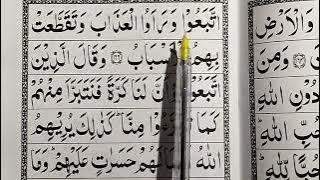 وَالْاَرْضِ
وَمِنَ
دُوْنِ اللّٰهِ
حُبِّ اللّٰهِ
حُبًّا لِّلّٰهِ
اتَّبَعُوْا وَرَاَوُا الْعَذَابَ وَتَقَطَّعَتْ
بِهِمُ الْاَسْبَابُ وَقَالَ الَّذِيْنَ
اتَّبَعُوْا لَنَا كَرَّةً فَنَتَبَرَّاَ مِنْهُمْ
كَمَا تَبَرَّءُوْا مِنَّا ؕ كَذٰلِكَ يُرِيْهِمُ
اللّٰهُ اَعْمَالَهُمْ حَسَرٰتٍ عَلَيْهِمْ ؕ وَمَا